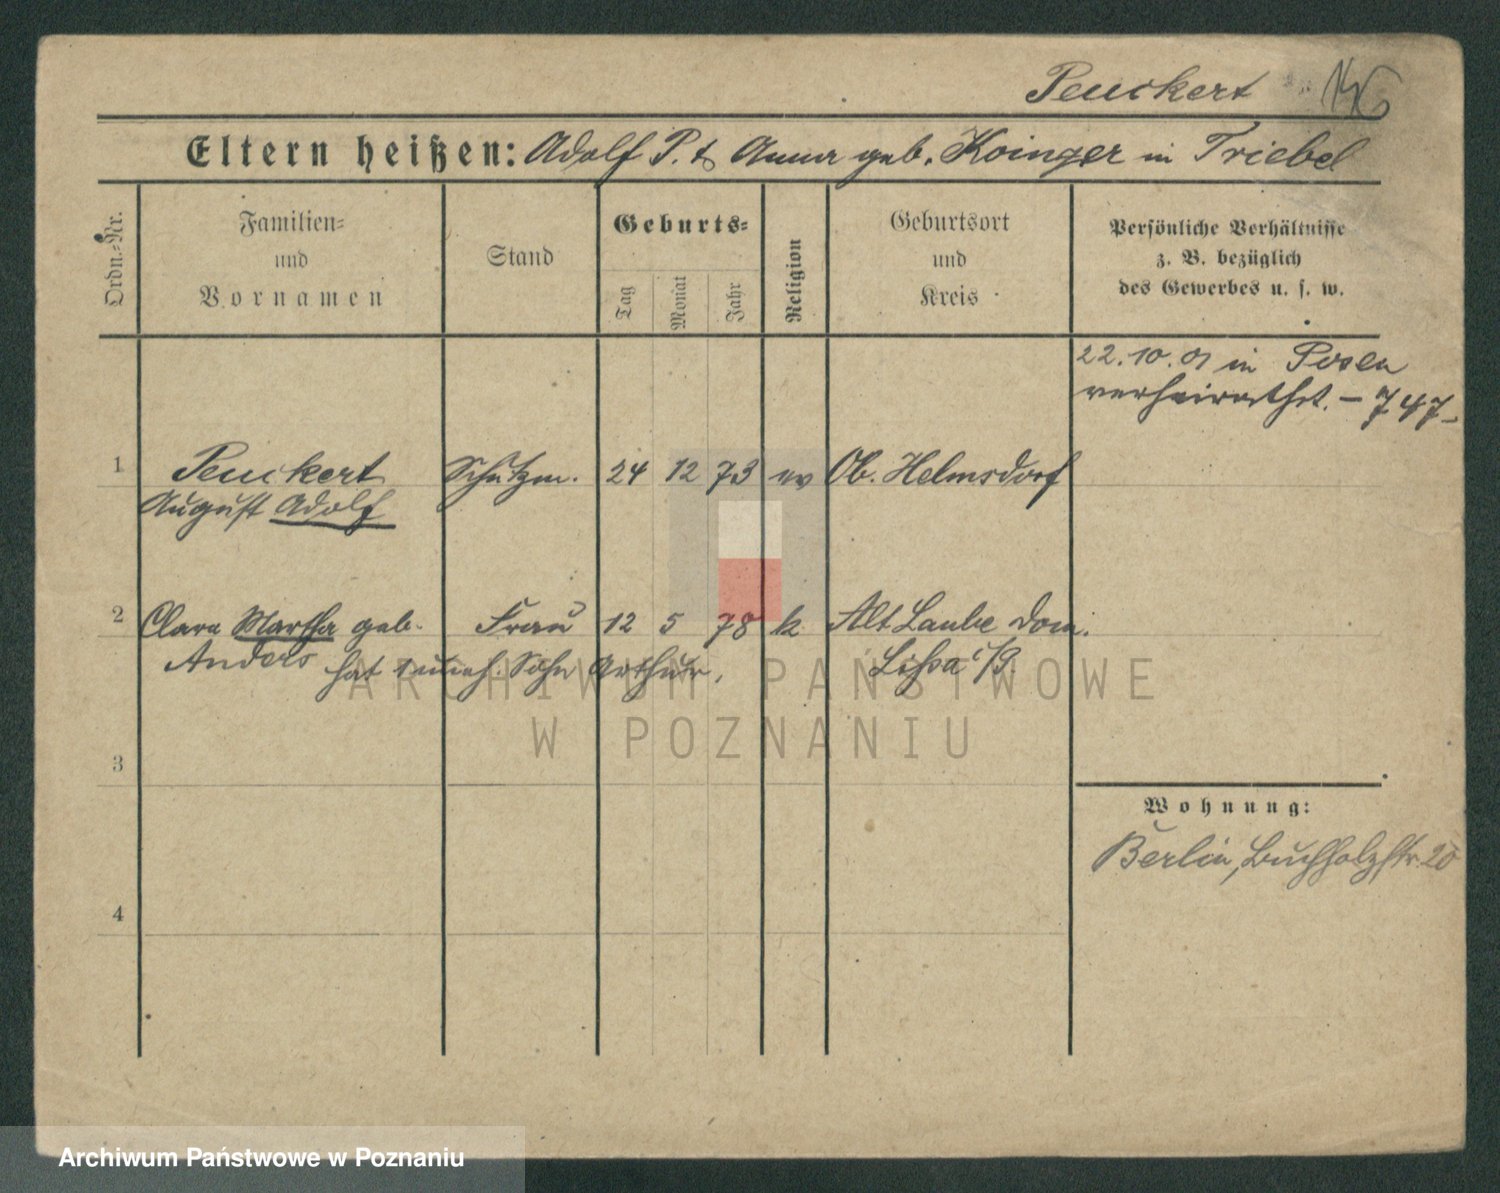 Peuckert
Eltern heißen: Adolf P. & Anna geb. Koinzer in Triebel
Ordn.-Nr.
Familien- und Vornamen
Stand
Geburts-
Tag Monat Jahr
Religion
Geburtsort und Kreis
Persönliche Verhältnisse
z. B. bezüglich
des Gewerbes u. s. w.
22.10.01 in Posen
verheirathet. – 747 –
1 Peuckert Schutzm. 24 12 73 ev Ob. Helmsdorf
August Adolf
2 Clara Martha geb. Frau 12 5 78 k. Alt Laube Dom.
Anders hat 1 uneh. Sohn Arthur. Lissa i/P.
3
Wohnung:
Berlin, Buchholzstr. 20
4
ARCHIWUM PAŃSTWOWE
W POZNANIU
Archiwum Państwowe w Poznaniu